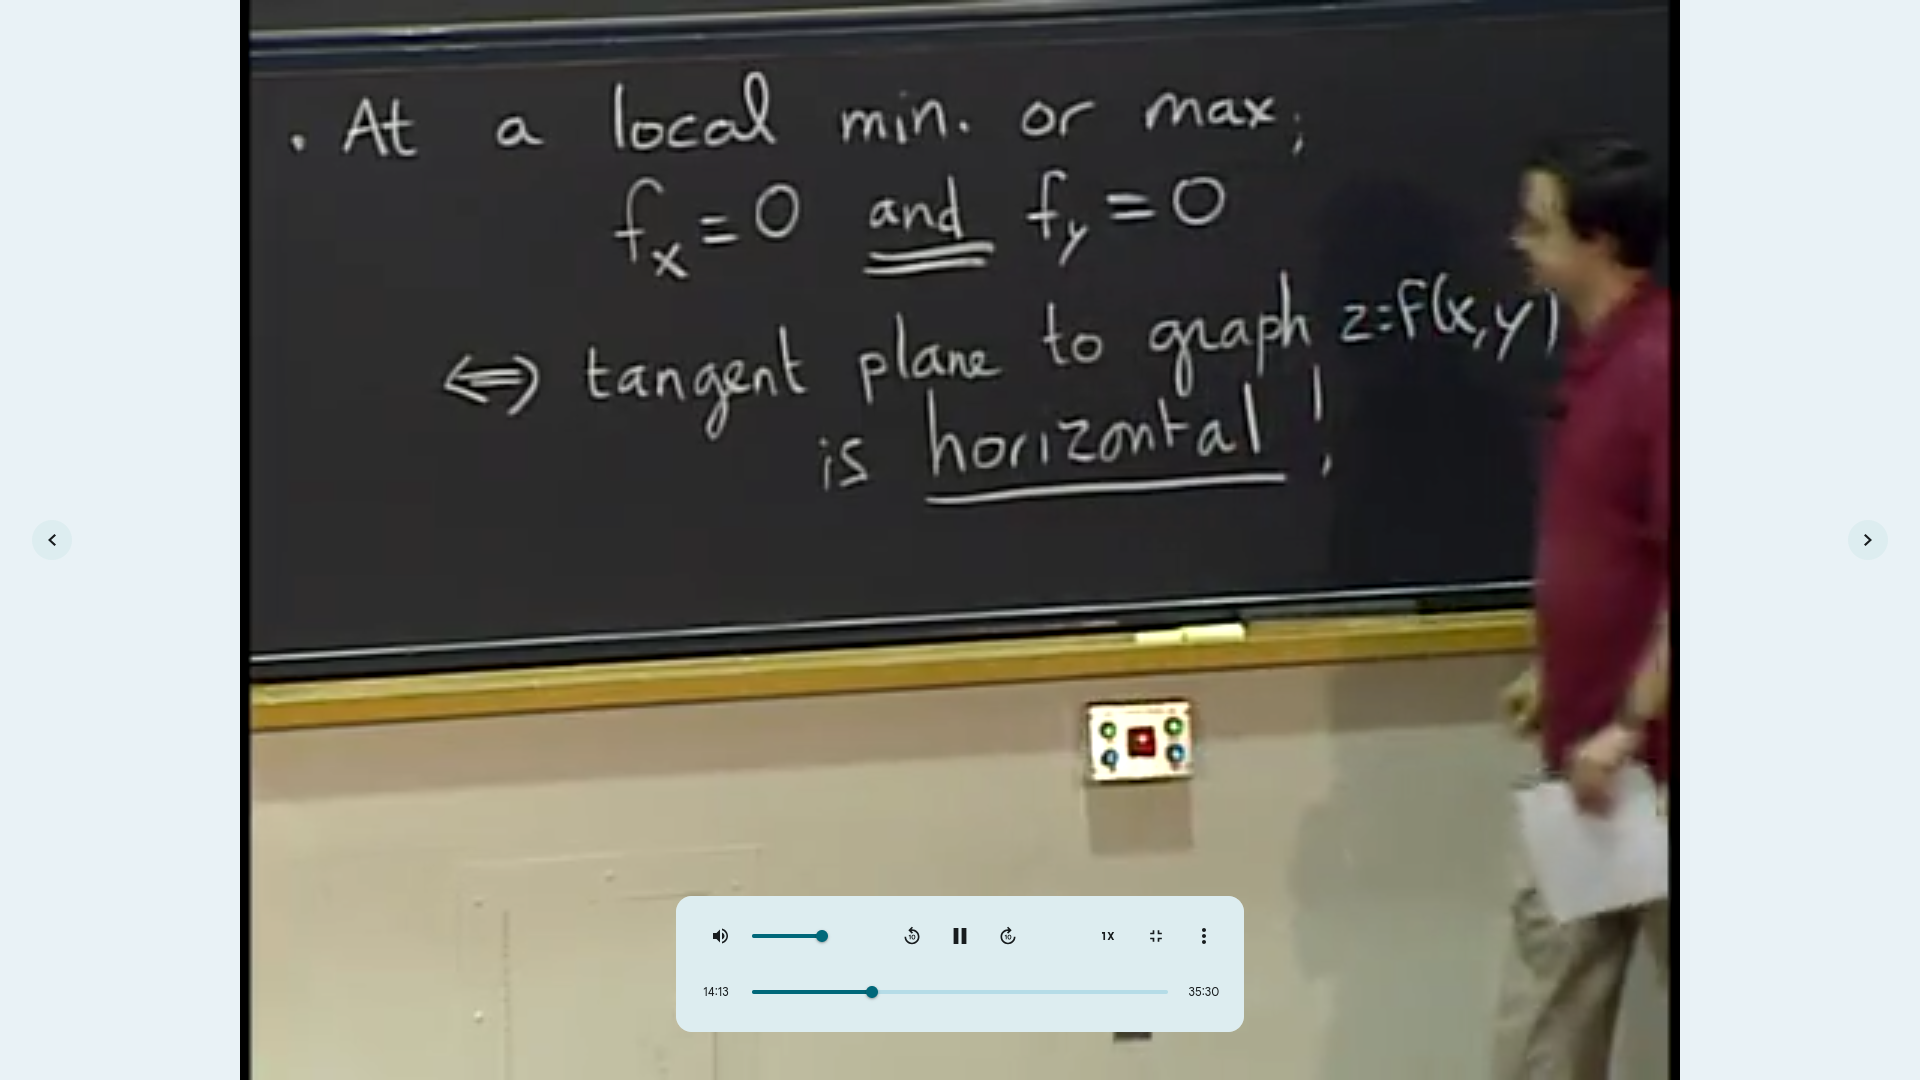 · At a local min. or max,
fx = 0 and fy = 0
⇔ tangent plane to graph z=f(x,y)
is horizontal !
10 10 1X
14:13 35:30